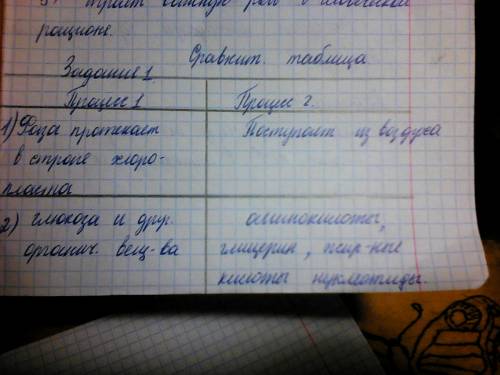 играет важную роль в
рационе.
Сравнит. таблица
Задание 1.
Процесс 1
Процесс 2.
1) Фаза протекает
в строме хлоро-
пласта
Поступает из воздуха
2) глюкоза и друг.
органич. вещ-ва
аминокислоты,
глицерин, жир-ные
кислоты нуклеотиды.